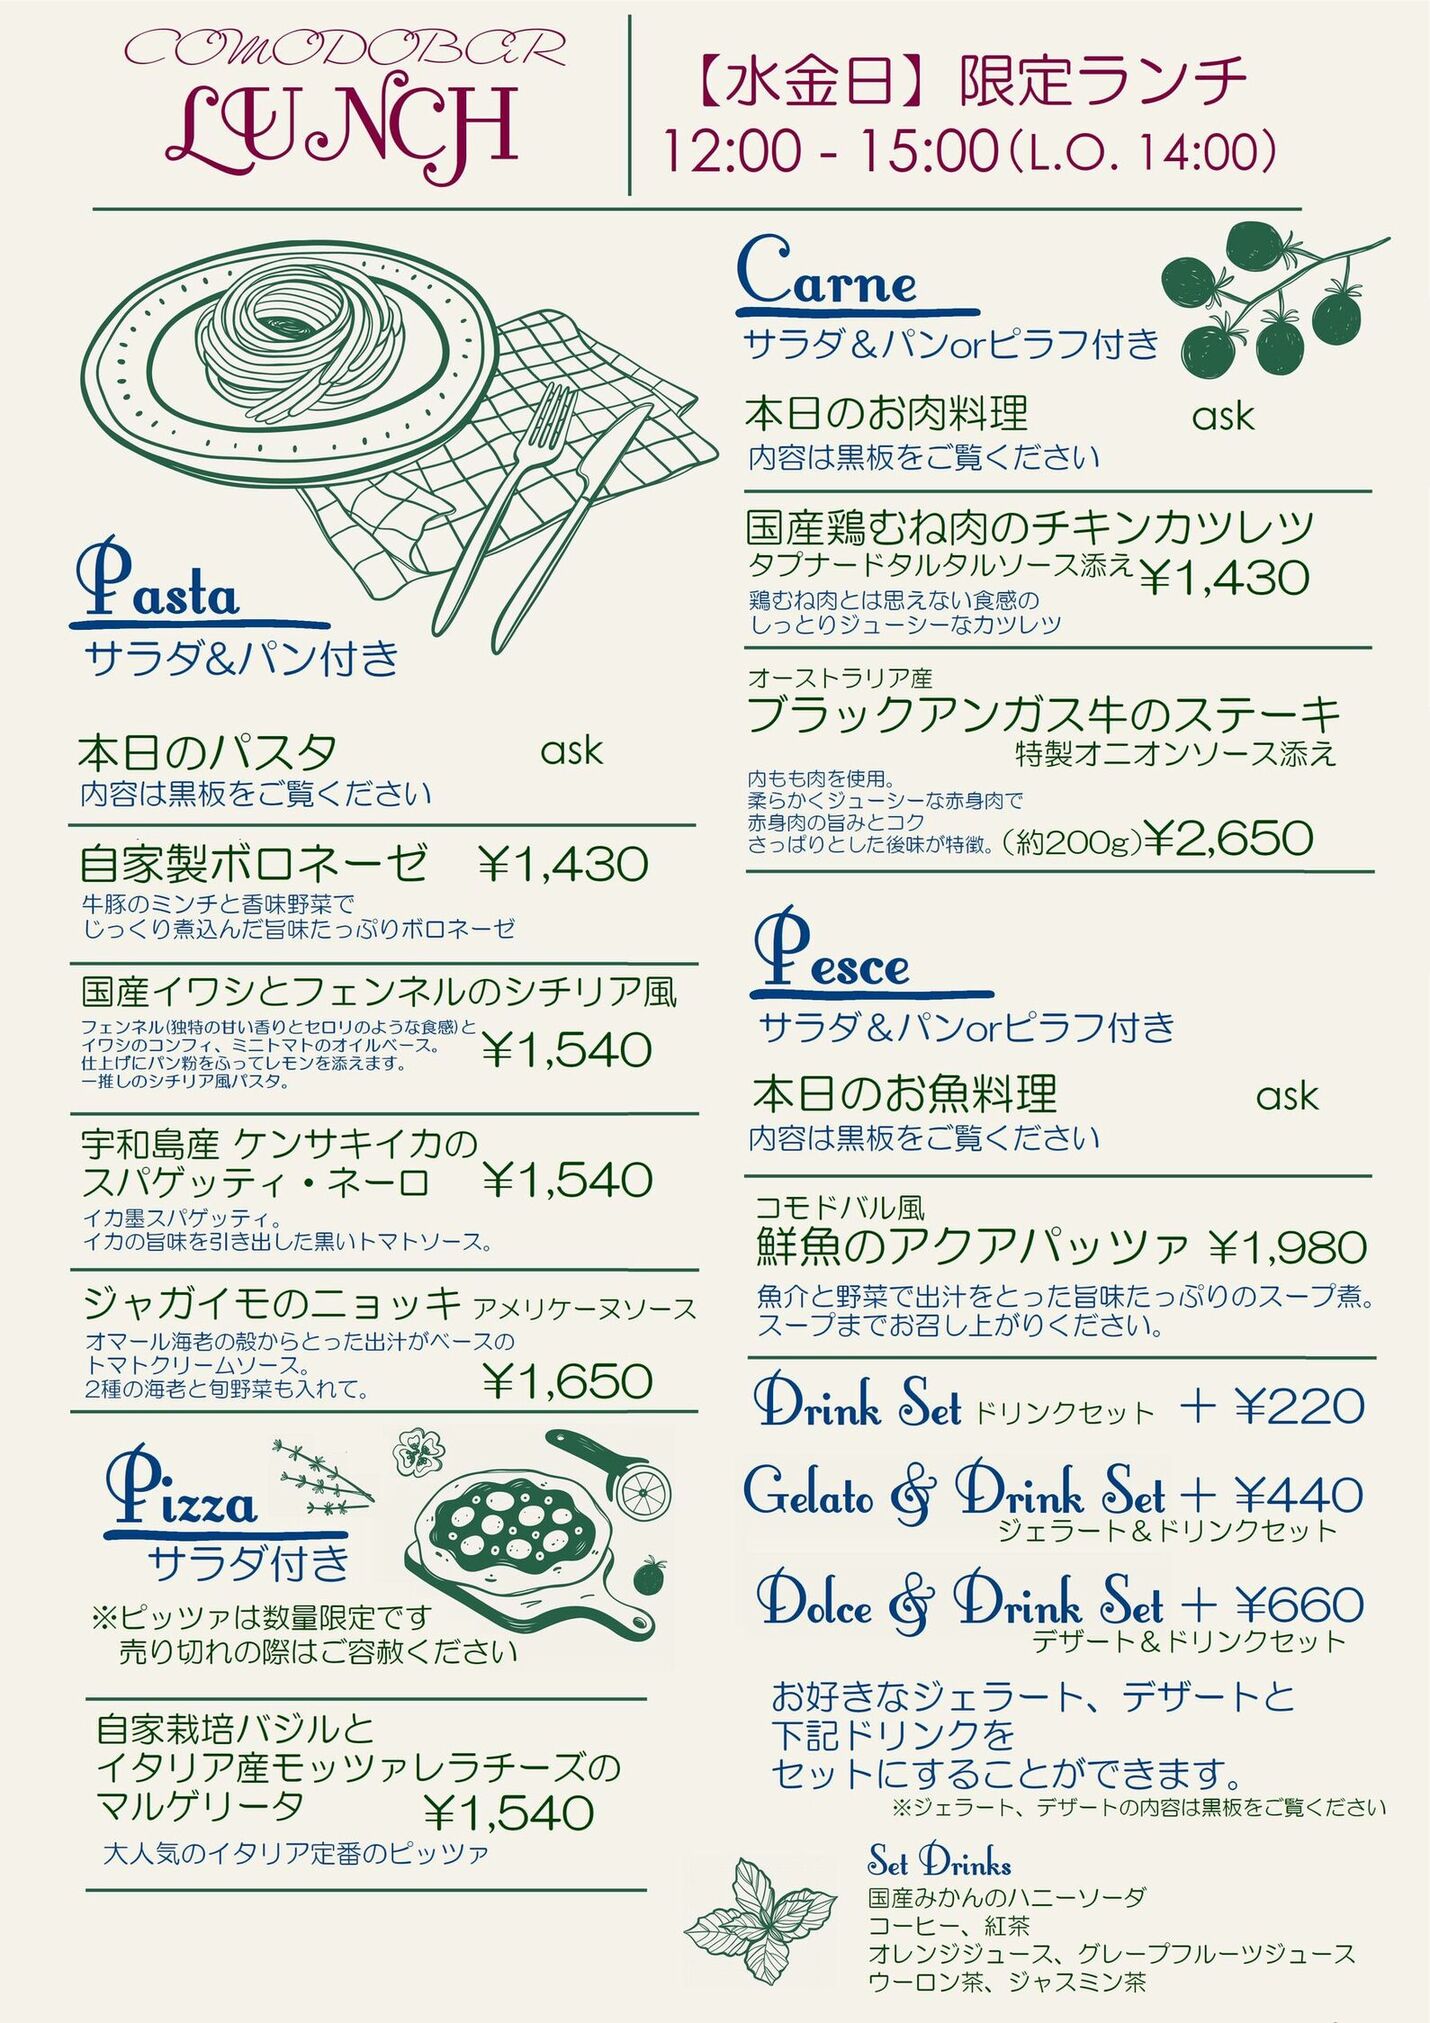 COMODOBAR
LUNCH
【水金日】限定ランチ
12:00 - 15:00(L.O. 14:00)
Pasta
サラダ&パン付き
本日のパスタ ask
内容は黒板をご覧ください
自家製ボロネーゼ ¥1,430
牛豚のミンチと香味野菜で
じっくり煮込んだ旨味たっぷりボロネーゼ
国産イワシとフェンネルのシチリア風
フェンネル(独特の甘い香りとセロリのような食感)と
イワシのコンフィ、ミニトマトのオイルベース。
仕上げにパン粉をふってレモンを添えます。
一推しのシチリア風パスタ。
¥1,540
宇和島産 ケンサキイカの
スパゲッティ・ネーロ ¥1,540
イカ墨スパゲッティ。
イカの旨味を引き出した黒いトマトソース。
ジャガイモのニョッキ アメリケーヌソース
オマール海老の殻からとった出汁がベースの
トマトクリームソース。
2種の海老と旬野菜も入れて。 ¥1,650
Pizza
サラダ付き
※ピッツァは数量限定です
売り切れの際はご容赦ください
自家栽培バジルと
イタリア産モッツァレラチーズの
マルゲリータ ¥1,540
大人気のイタリア定番のピッツァ
Carne
サラダ&パンorピラフ付き
本日のお肉料理 ask
内容は黒板をご覧ください
国産鶏むね肉のチキンカツレツ
タプナードタルタルソース添え ¥1,430
鶏むね肉とは思えない食感の
しっとりジューシーなカツレツ
オーストラリア産
ブラックアンガス牛のステーキ
特製オニオンソース添え
内もも肉を使用。
柔らかくジューシーな赤身肉で
赤身肉の旨みとコク
さっぱりとした後味が特徴。(約200g)¥2,650
Pesce
サラダ&パンorピラフ付き
本日のお魚料理 ask
内容は黒板をご覧ください
コモドバル風
鮮魚のアクアパッツァ ¥1,980
魚介と野菜で出汁をとった旨味たっぷりのスープ煮。
スープまでお召し上がりください。
Drink Set ドリンクセット + ¥220
Gelato & Drink Set + ¥440
ジェラート&ドリンクセット
Dolce & Drink Set + ¥660
デザート&ドリンクセット
お好きなジェラート、デザートと
下記ドリンクを
セットにすることができます。
※ジェラート、デザートの内容は黒板をご覧ください
Set Drinks
国産みかんのハニーソーダ
コーヒー、紅茶
オレンジジュース、グレープフルーツジュース
ウーロン茶、ジャスミン茶